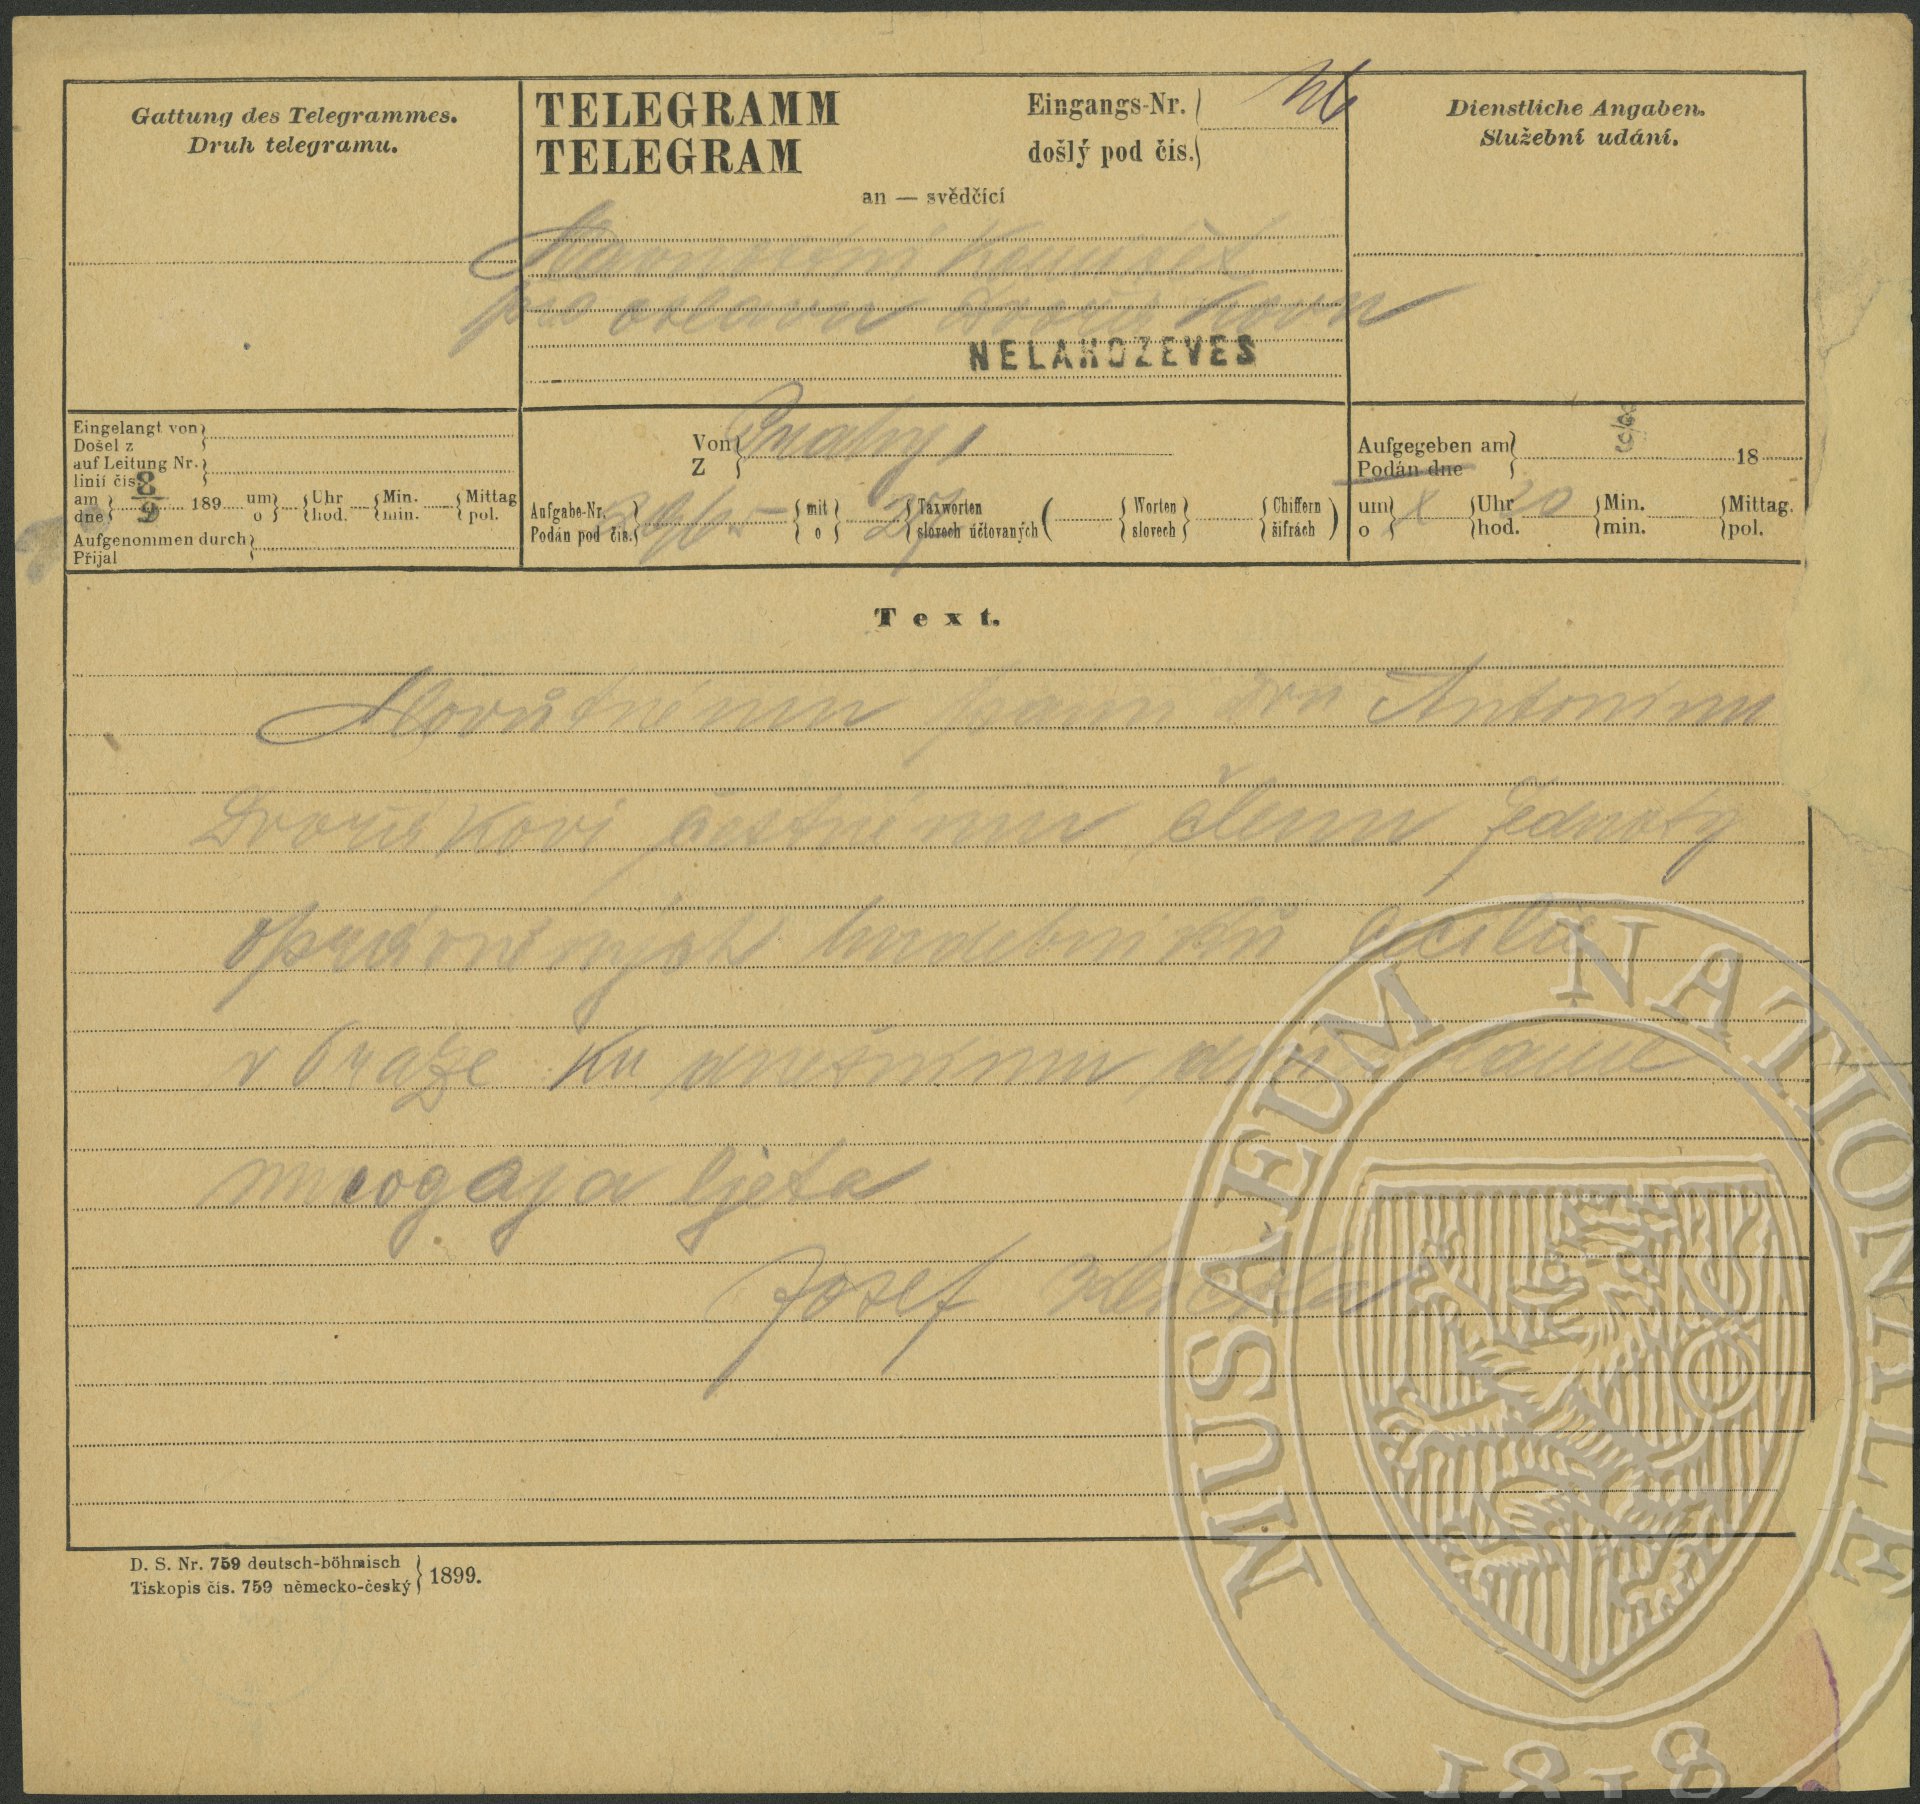 Gattung des Telegrammes.
Druh telegramu.
TELEGRAMM
TELEGRAM
Eingangs-Nr.
došlý pod čís.
an — svědčící
Komitét
pro oslavu Dvořákovu
NELAHOZEVES
Dienstliche Angaben.
Služební udání.
Eingelangt von
Došel z
auf Leitung Nr.
linií čís.
am 8/9 189 um Uhr Min. Mittag
dne o hod. min. pol.
Aufgenommen durch
Přijal
Von Prahy
Z
Aufgabe-Nr. mit 27 Taxworten Worten Chiffern
Podán pod čís. o slovech účtovaných slovech šifrách
Aufgegeben am 18
Podán dne
um Uhr 20 Min. Mittag.
o hod. min. pol.
Text.
panu dru Antonínu
Dvořákovi čestnému členu Jednoty
hudebníků
v Praze ku dnešnímu dni
mnogaja ljeta
Josef
D. S. Nr. 759 deutsch-böhmisch
Tiskopis čís. 759 německo-český 1899.
MUSAEUM NATIONALE
1818